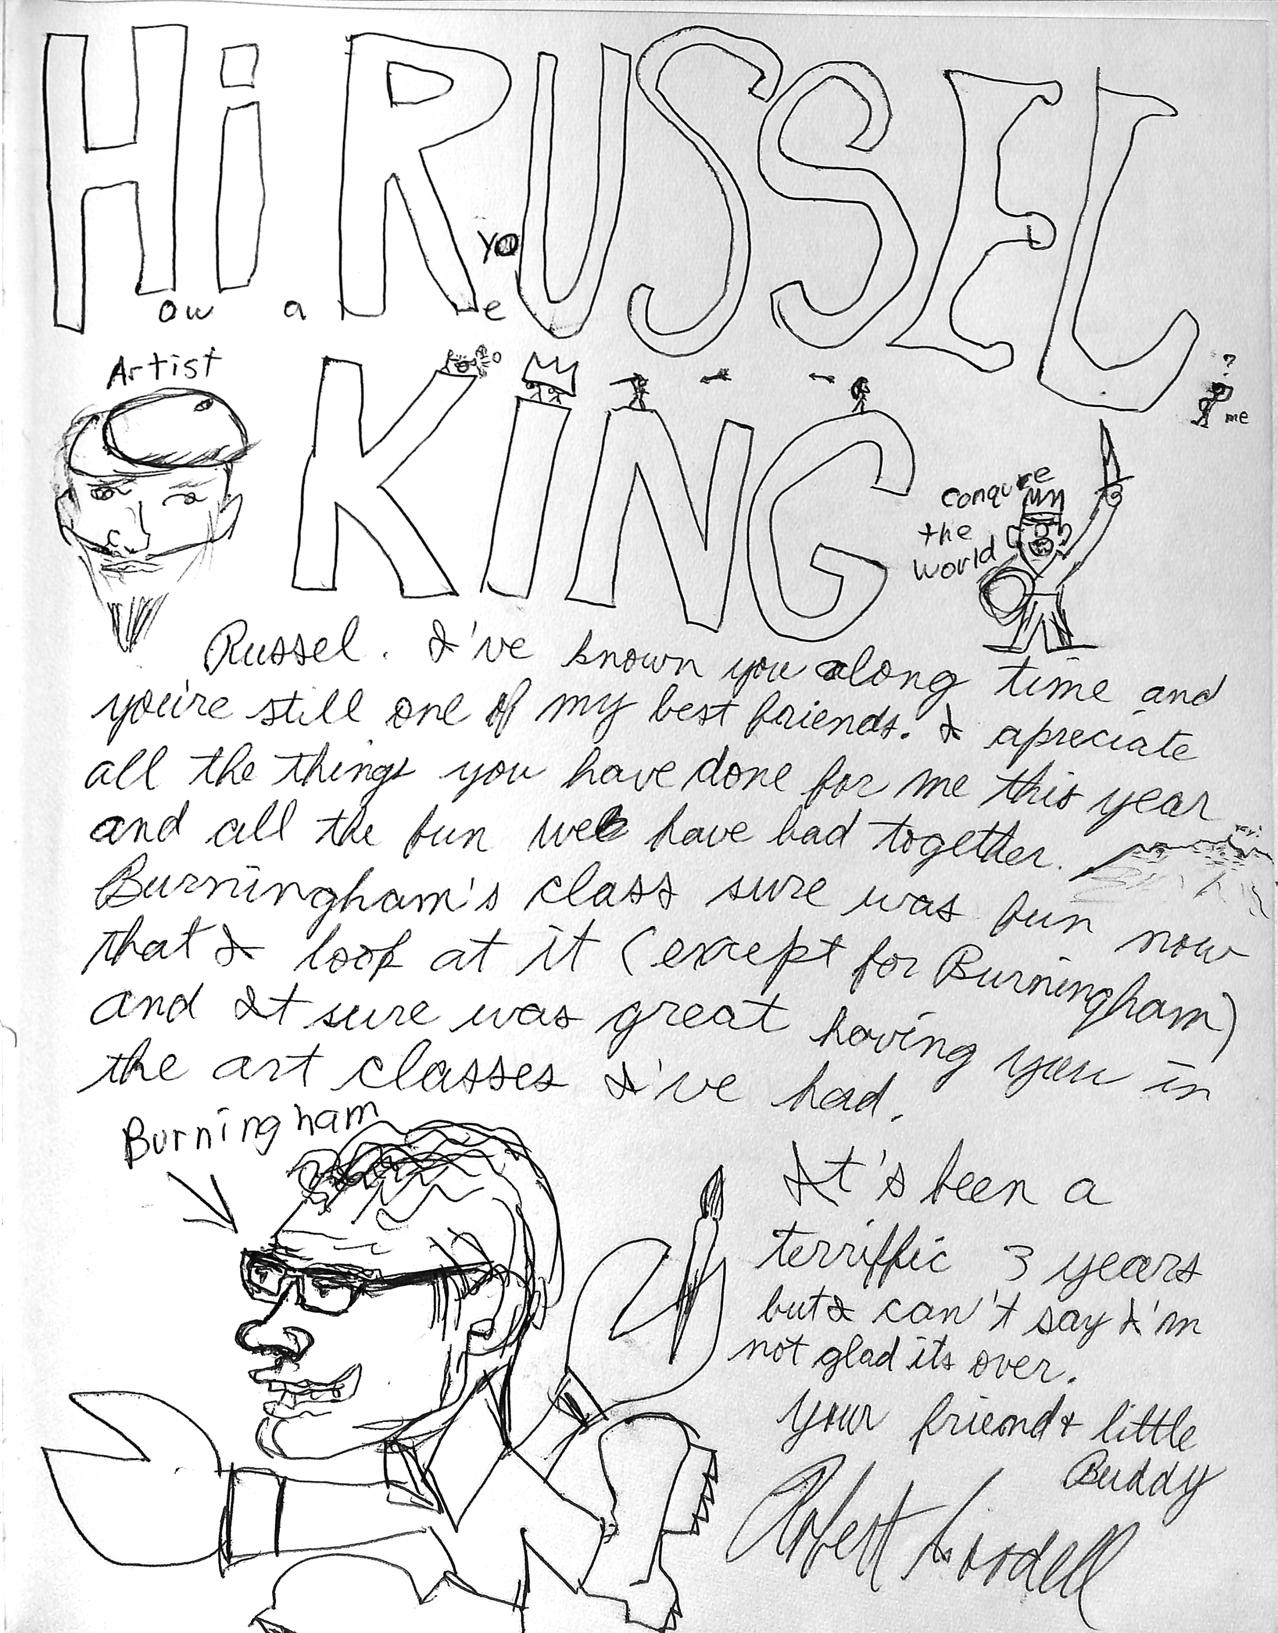 Hi RUSSEL
You
ow a e
KING
Artist
?
me
Conqure
the
world
Russel. I've known you along time and
you're still one of my best friends. I apreciate
all the things you have done for me this year
and all the fun we have had together.
Burningham's class sure was fun now
that I look at it (except for Burningham)
and It sure was great having you in
the art classes I've had.
Burningham
It's been a
terriffic 3 years
but I can't say I'm
not glad its over.
your friend & little
Buddy
Robert